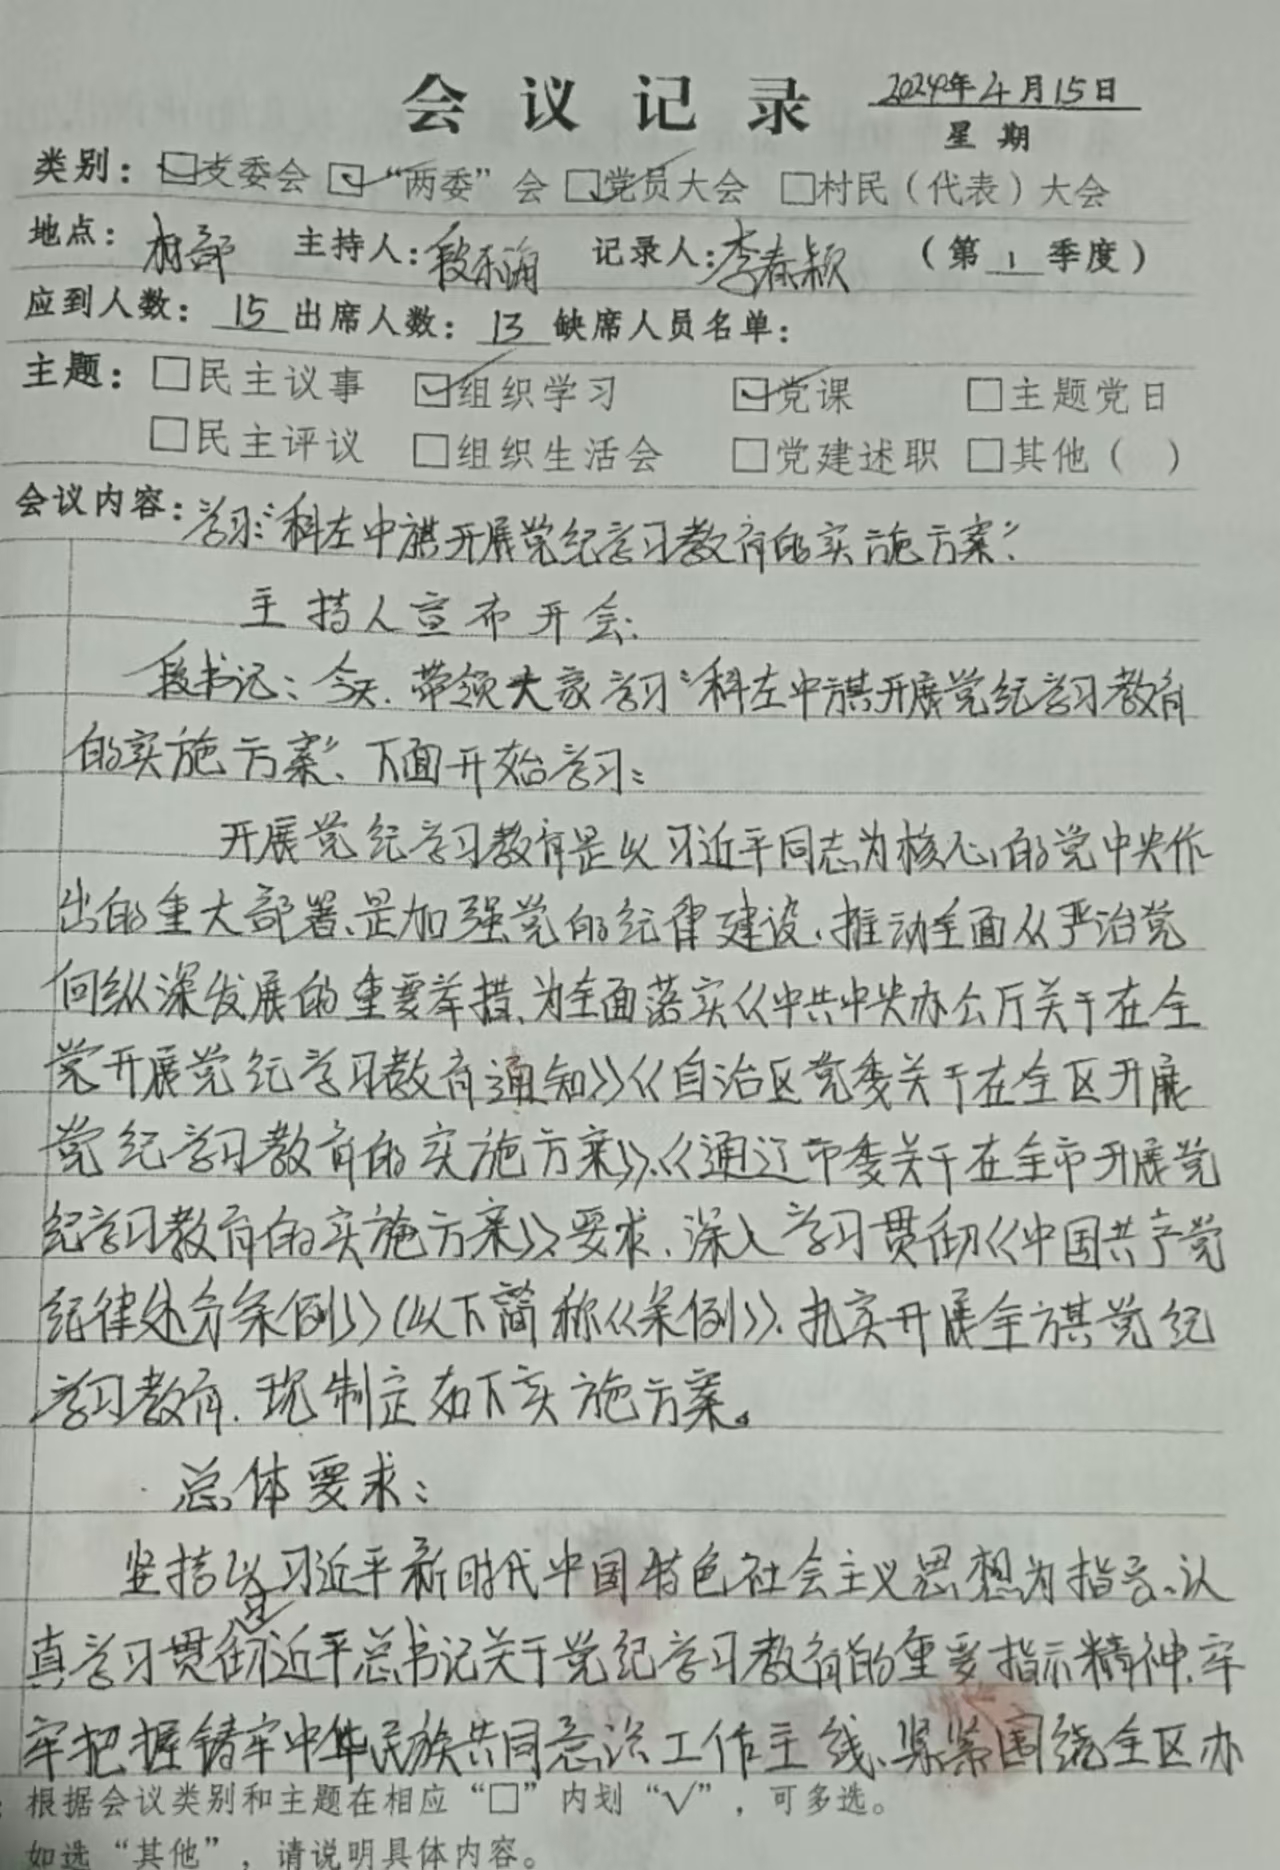 会议记录 2024年4月15日
星期
类别：☑支委会 ☑“两委”会 ☑党员大会 □村民（代表）大会
地点：村部 主持人：段东海 记录人：李春颖 （第1季度）
应到人数：15出席人数：13缺席人员名单：
主题：□民主议事 ☑组织学习 ☑党课 □主题党日
□民主评议 □组织生活会 □党建述职 □其他（ ）
会议内容：学习：“科左中旗开展党纪学习教育的实施方案”
主持人宣布开会：
段书记：今天、带领大家学习“科左中旗开展党纪学习教育
的实施方案”、下面开始学习：
开展党纪学习教育是以习近平同志为核心的党中央作
出的重大部署、是加强党的纪律建设、推动全面从严治党
向纵深发展的重要举措、为全面落实《中共中央办公厅关于在全
党开展党纪学习教育通知》《自治区党委关于在全区开展
党纪学习教育的实施方案》、《通辽市委关于在全市开展党
纪学习教育的实施方案》要求、深入学习贯彻《中国共产党
纪律处分条例》（以下简称《条例》）、扎实开展全旗党纪
学习教育、现制定如下实施方案。
总体要求：
坚持以习近平新时代中国特色社会主义思想为指导、认
真学习贯彻习近平总书记关于党纪学习教育的重要指示精神、牢
牢把握铸牢中华民族共同意识工作主线、紧紧围绕全区办
：根据会议类别和主题在相应“□”内划“√”，可多选。
如选“其他”，请说明具体内容。